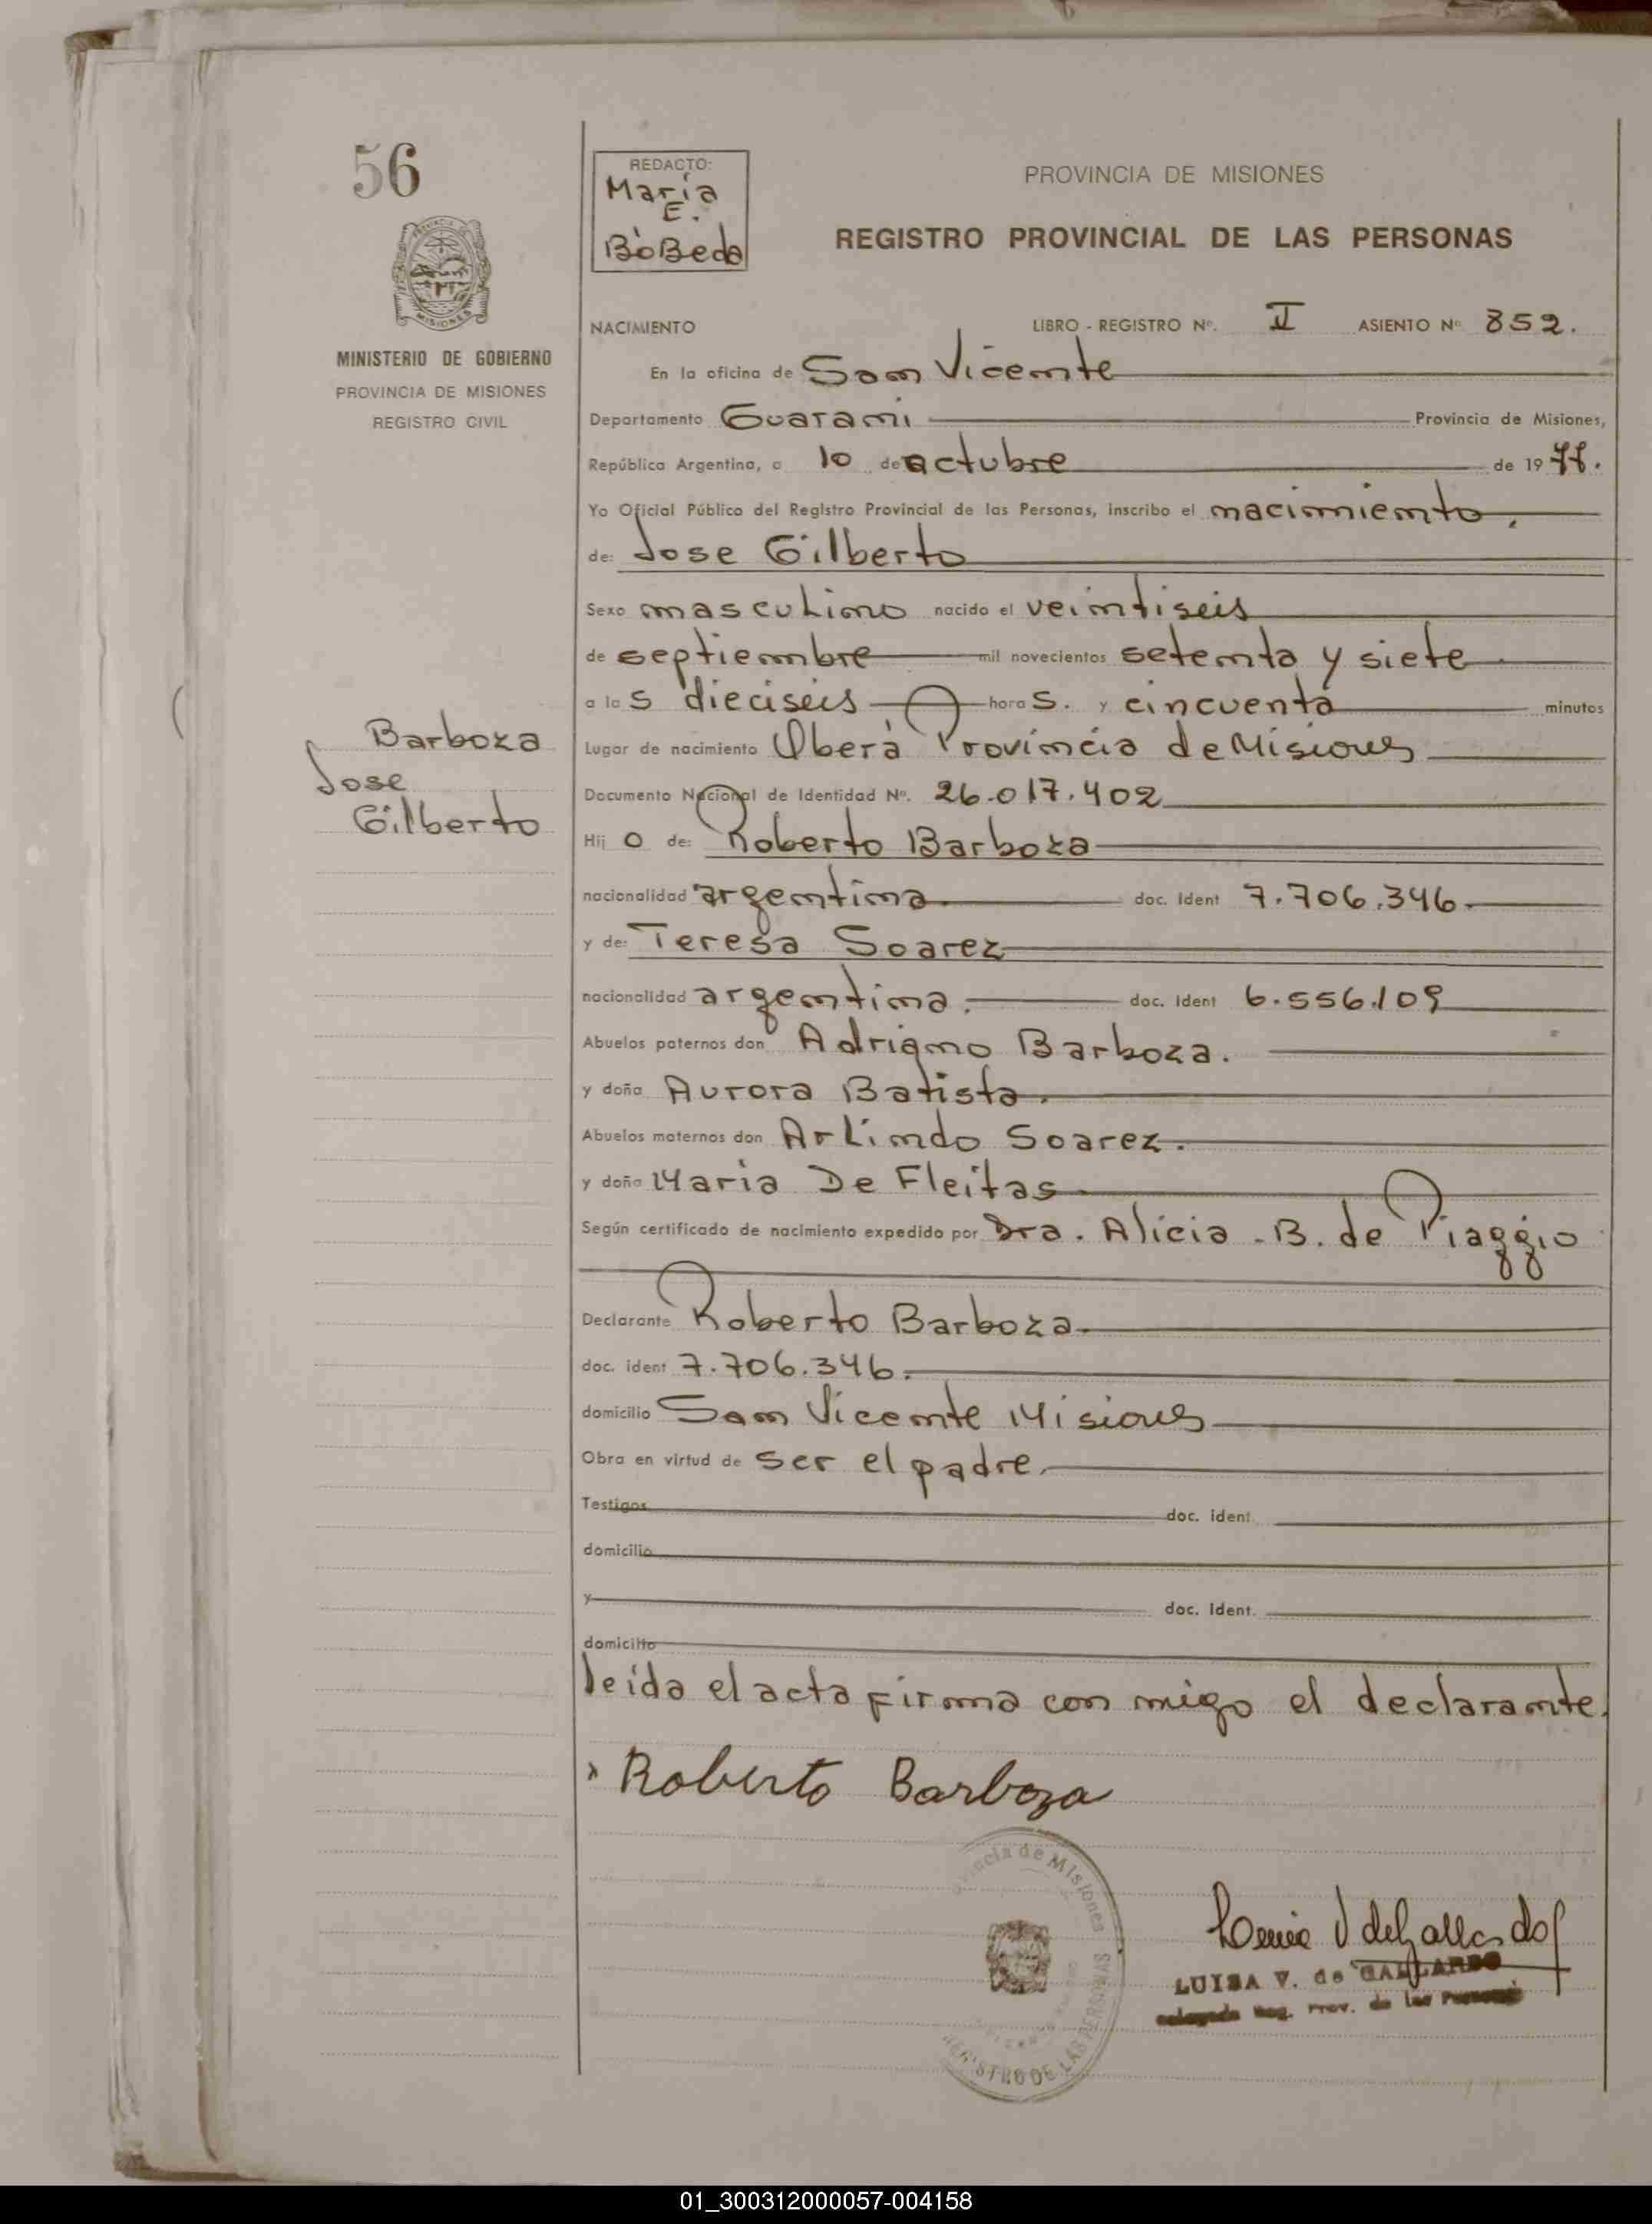 56
MINISTERIO DE GOBIERNO
PROVINCIA DE MISIONES
REGISTRO CIVIL
Barboza
Jose
Gilberto
REDACTO:
Maria
E.
BoBeda
PROVINCIA DE MISIONES
REGISTRO PROVINCIAL DE LAS PERSONAS
NACIMIENTO LIBRO - REGISTRO Nº. II ASIENTO Nº 852.
En la oficina de San Vicente
Departamento Guarani Provincia de Misiones,
República Argentina, a 10 de octubre de 1977.
Yo Oficial Público del Registro Provincial de las Personas, inscribo el nacimiento.
de: Jose Gilberto
Sexo masculino nacido el veintiseis
de septiembre mil novecientos setenta y siete
a las dieciseis horas. y cincuenta minutos
Lugar de nacimiento Oberá Provincia de Misiones
Documento Nacional de Identidad Nº. 26.017.402
Hijo de: Roberto Barboza
nacionalidad argentina. doc. Ident 7.706.346.
y de: Teresa Soarez
nacionalidad argentina. doc. Ident 6.556.109
Abuelos paternos don Adriano Barboza.
y doña Aurora Batista.
Abuelos maternos don Arlindo Soarez.
y doña Maria De Fleitas
Según certificado de nacimiento expedido por Dra. Alicia - B. de Piaggio
Declarante Roberto Barboza.
doc. ident 7.706.346.
domicilio San Vicente Misiones
Obra en virtud de ser el padre.
Testigos doc. ident.
domicilio
y doc. ident.
domicilio
leida el acta firma con migo el declarante.
Roberto Barboza
Provincia de Misiones
REGISTRO DE LAS PERSONAS
LUISA V. de GALLARDO
Delegada Reg. Prov. de las Personas
01_300312000057-004158